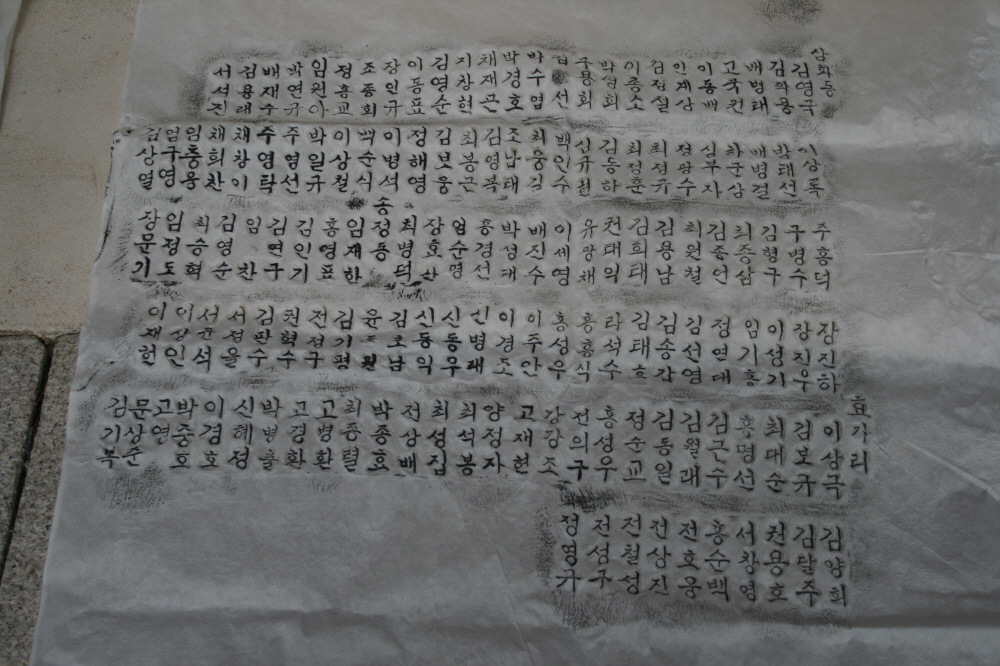 삼화동
김영극
배병태
이동배
안계상
이종소
박성회
구용회
박수엽
박경호
채재근
지창현
김영순
이동표
장인규
조종회
정흥교
임원아
박연규
배재수
김용태
서석진
이상록
박태선
배병걸
차군상
심부자
정광수
최정규
최정훈
김동하
신규현
백인수
최웅길
조남태
김영복
최봉근
김보웅
정해영
이병석
백순식
이상철
박일규
주영선
주영탁
채창이
채희찬
임충용
엄구영
김상열
주흥덕
구병수
김형구
최종삼
김종언
최원철
김용남
김희태
권대익
유광채
이세영
배진수
박성대
홍경선
엄순명
장효산
최병덕
송
정동
임재한
홍영표
김인기
김연구
임찬
김영순
최승혁
임정도
장문기
장진하
장진우
이성기
임기홍
정연대
김선영
김송갑
김태호
라석수
홍흥식
홍성우
이주안
이경조
신병태
신동우
신동익
김호남
김기평
전정구
권혁수
김판수
서정율
서윤석
이상인
이재헌
효가리
이상극
김보규
최대순
홍명선
김근수
김월래
김동일
정순교
홍성우
전의구
강강조
고재현
양정자
최석봉
최성집
전상배
박종효
최종렬
고병환
고경환
박병률
신혜정
이겸호
박중호
고연
문상준
김기복
김양희
김달주
권용호
서창영
홍순백
전호웅
전상진
전철성
전성구
정영규